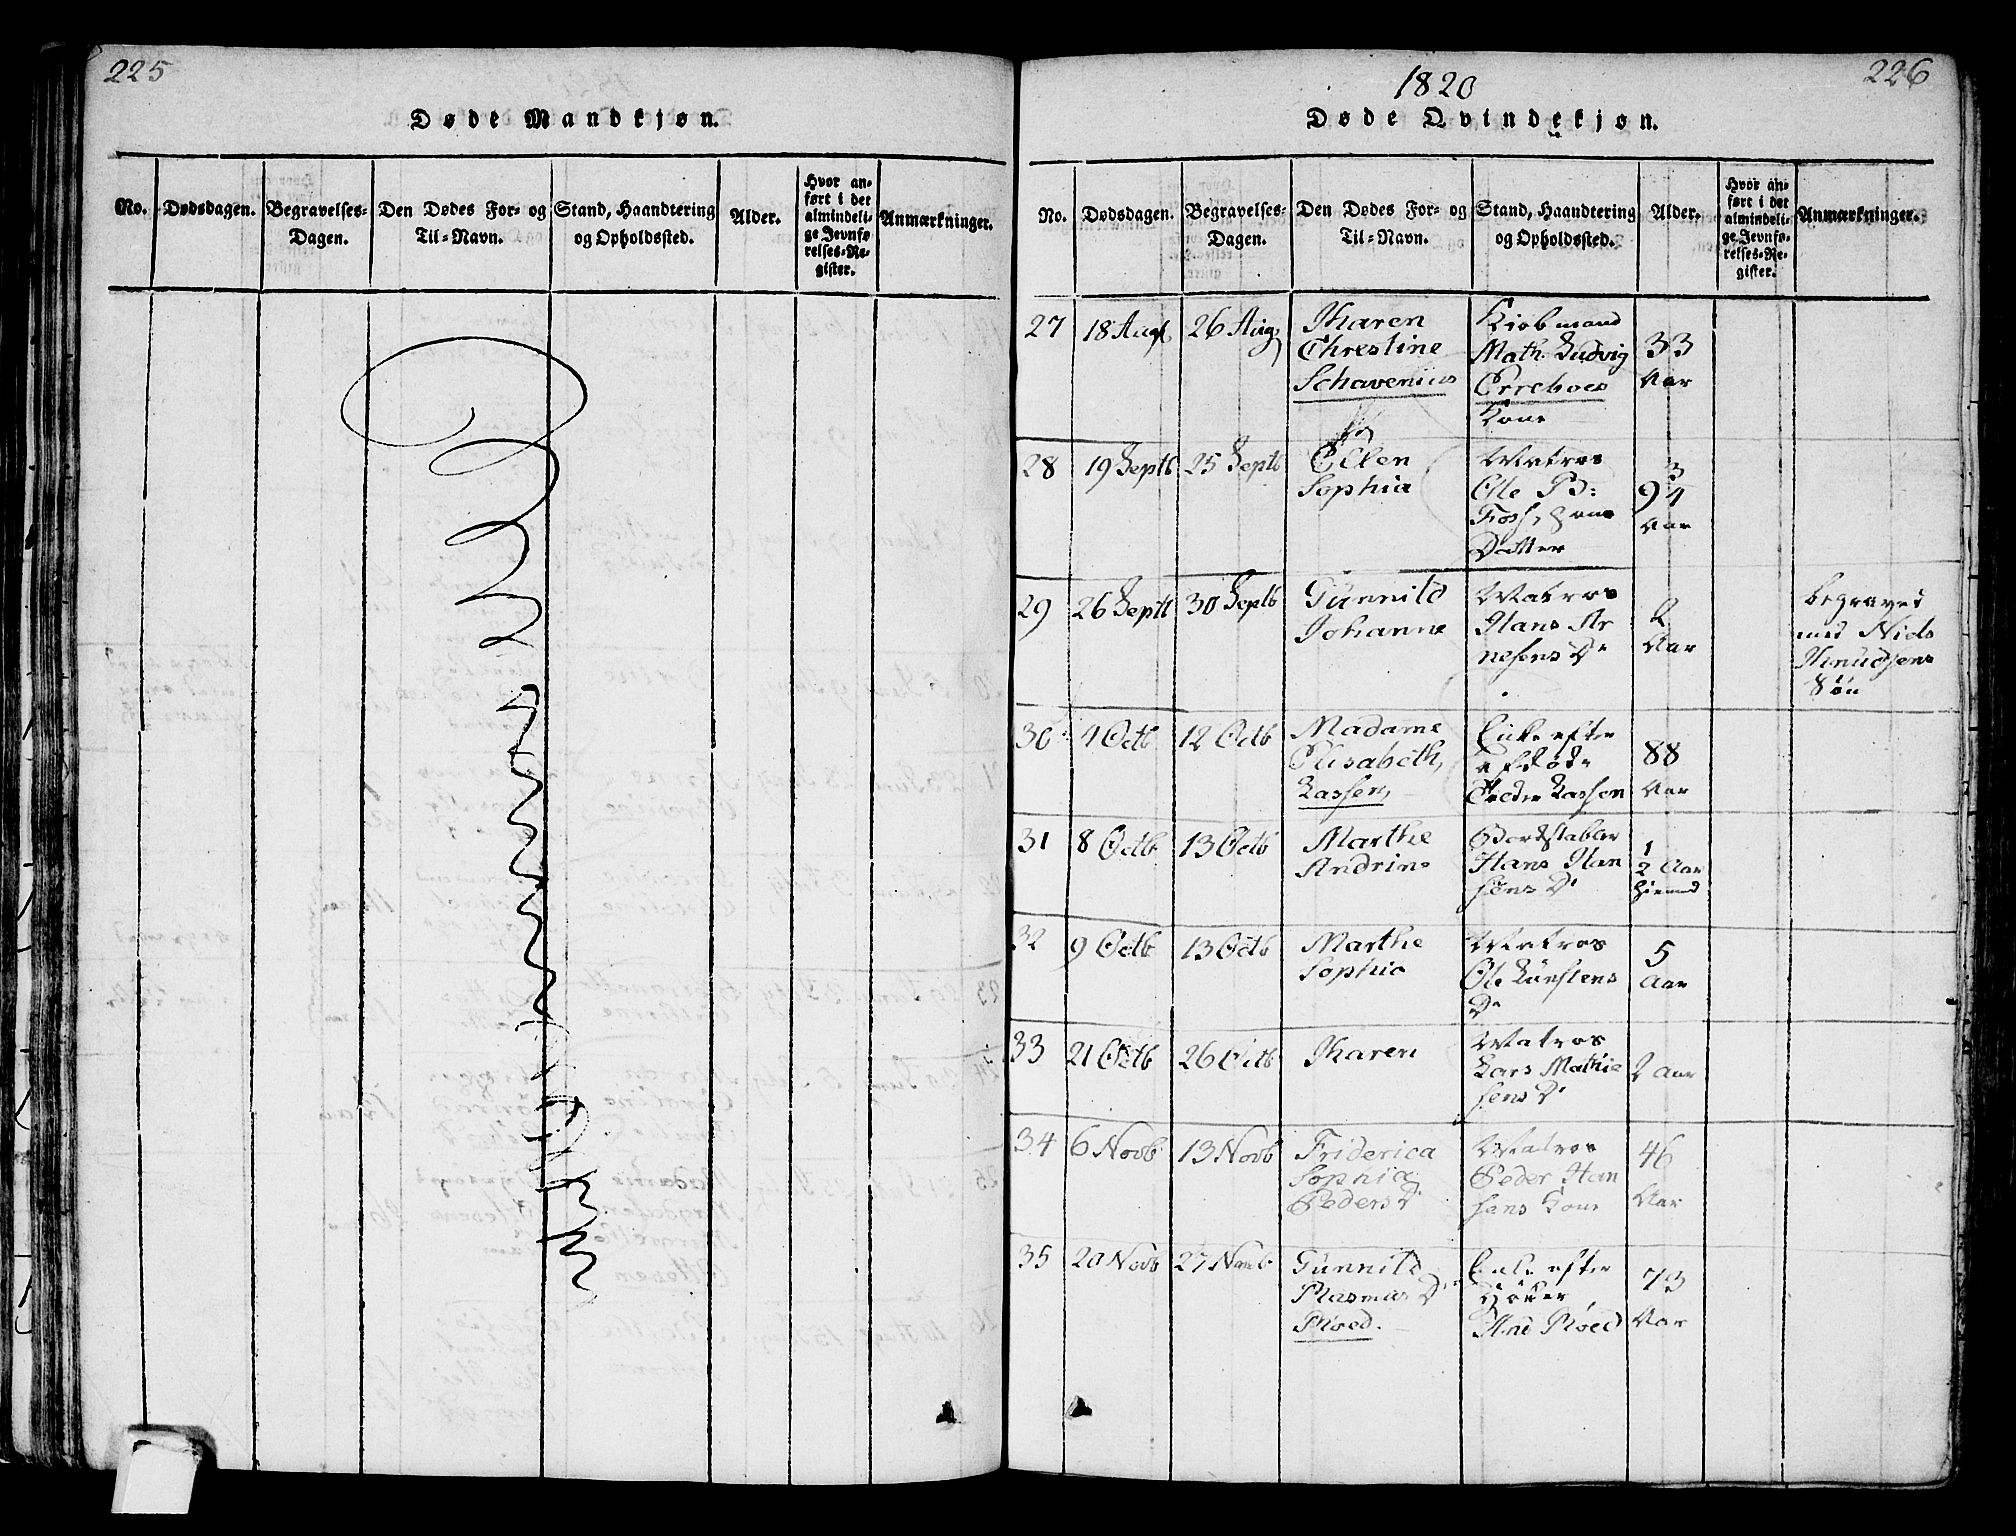 225
Døde Mandkjøn.
No.
Dødsdagen.
Begravelses-
Dagen.
Den Dødes For- og
Til-Navn.
Stand, Haandtering
og Opholdssted.
Alder.
Hvor an-
ført i det
almindeli-
ge Jevnfø-
relses-Re-
gister.
Anmærkninger.
226
1820
Døde Qvindekjøn.
No.
Dødsdagen.
Begravelses-
Dagen.
Den Dødes For- og
Til-Navn.
Stand, Haandtering
og Opholdssted.
Alder.
Hvor an-
ført i det
almindeli-
ge Jevnfø-
relses-Re-
gister.
Anmærkninger.
27
18 Aug
26 Aug
Karen
Chrestine
Schavenius
Kiøbmand
Math. Ludvig
Erreboes
Kone
33
Aar
28
19 Septb
25 Septb
Ellen
Sophia
Matros
Ole P:
Foss,
Datter
Aar
29
26 Septb
30 Septb
Gunnild
Johanne
Matros
Hans Ar
nesens D
2
Aar
begraved
med Niels
Knudsens
Søn
30
4 Octb
12 Octb
Madame
Elisabeth,
Lassen,
Enke efter
afdøde
Peder Lassen
88
Aar
31
8 Octb
13 Octb
Marthe
Andrine
Bordstabler
Hans Han
sens D
2 Aar
32
9 Octb
13 Octb
Marthe
Sophia
Matros
Ole
D
5
Aar
33
21 Octb
26 Octb
Karen
Matros
Lars Mathie
sens D
2 Aar
34
6 Novb
13 Novb
Friderica
Sophia
Peders D
Matros
Peder Han
sens Kone
46
Aar
35
20 Novb
27 Novb
Gunnild
Rasmus D
Røed.
Enke efter
Høker
And Røed
73
Aar